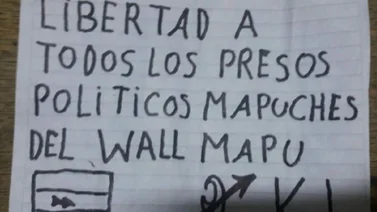 LIBERTAD A
TODOS LOS PRESOS
POLITICOS MAPUCHES
DEL WALL MAPU